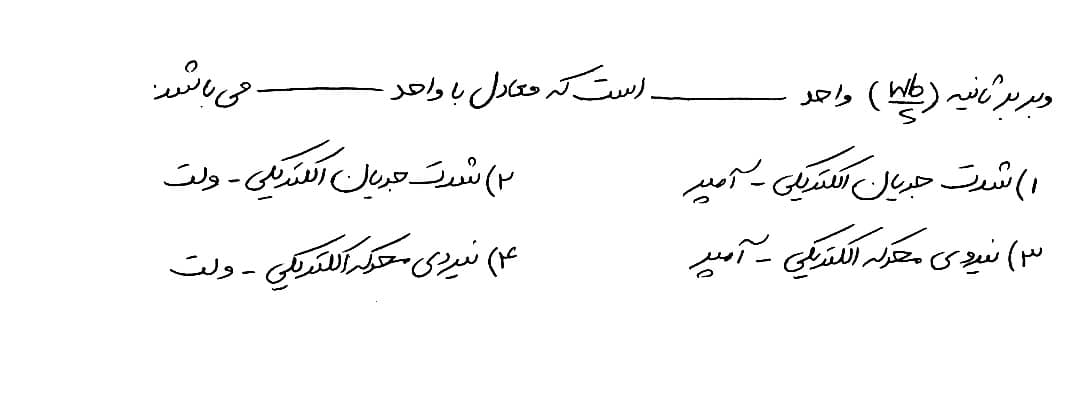 وبر بر ثانیه (Wb/s) واحد ــــــــ است که معادل با واحد ــــــــ می باشد.
۱) شدت جریان الکتریکی - آمپر ۲) شدت جریان الکتریکی - ولت
۳) نیروی محرکه الکتریکی - آمپر ۴) نیروی محرکه الکتریکی - ولت